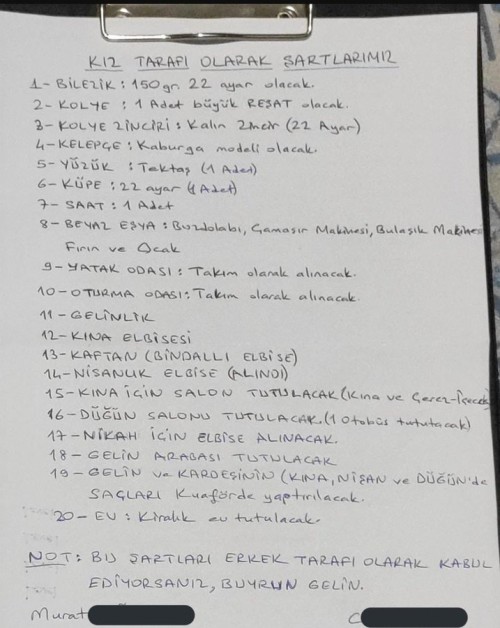 KIZ TARAFI OLARAK ŞARTLARIMIZ
1- BİLEZİK : 150 gr. 22 ayar olacak.
2- KOLYE : 1 Adet büyük REŞAT olacak.
3- KOLYE ZİNCİRİ : Kalın Zincir (22 Ayar)
4- KELEPÇE : Kaburga modeli olacak.
5- YÜZÜK : Tektaş (1 Adet)
6- KÜPE : 22 ayar (1 Adet)
7- SAAT : 1 Adet
8- BEYAZ EŞYA : Buzdolabı, Çamaşır Makinesi, Bulaşık Makine
Fırın ve Ocak
9- YATAK ODASI : Takım olarak alınacak.
10- OTURMA ODASI : Takım olarak alınacak.
11- GELİNLİK
12- KINA ELBİSESİ
13- KAFTAN (BİNDALLI ELBİSE)
14- NİŞANLIK ELBİSE (ALINDI)
15- KINA İÇİN SALON TUTULACAK (Kına ve Çerez-İçecek
16- DÜĞÜN SALONU TUTULACAK. (1 Otobüs tutulacak)
17- NİKAH İÇİN ELBİSE ALINACAK.
18- GELİN ARABASI TUTULACAK
19- GELİN ve KARDEŞİNİN (KINA, NİŞAN ve DÜĞÜN'de
SAÇLARI Kuaförde yaptırılacak.
20- EV : Kiralık ev tutulacak.
NOT : BU ŞARTLARI ERKEK TARAFI OLARAK KABUL
EDİYORSANIZ, BUYRUN GELİN.
Murat